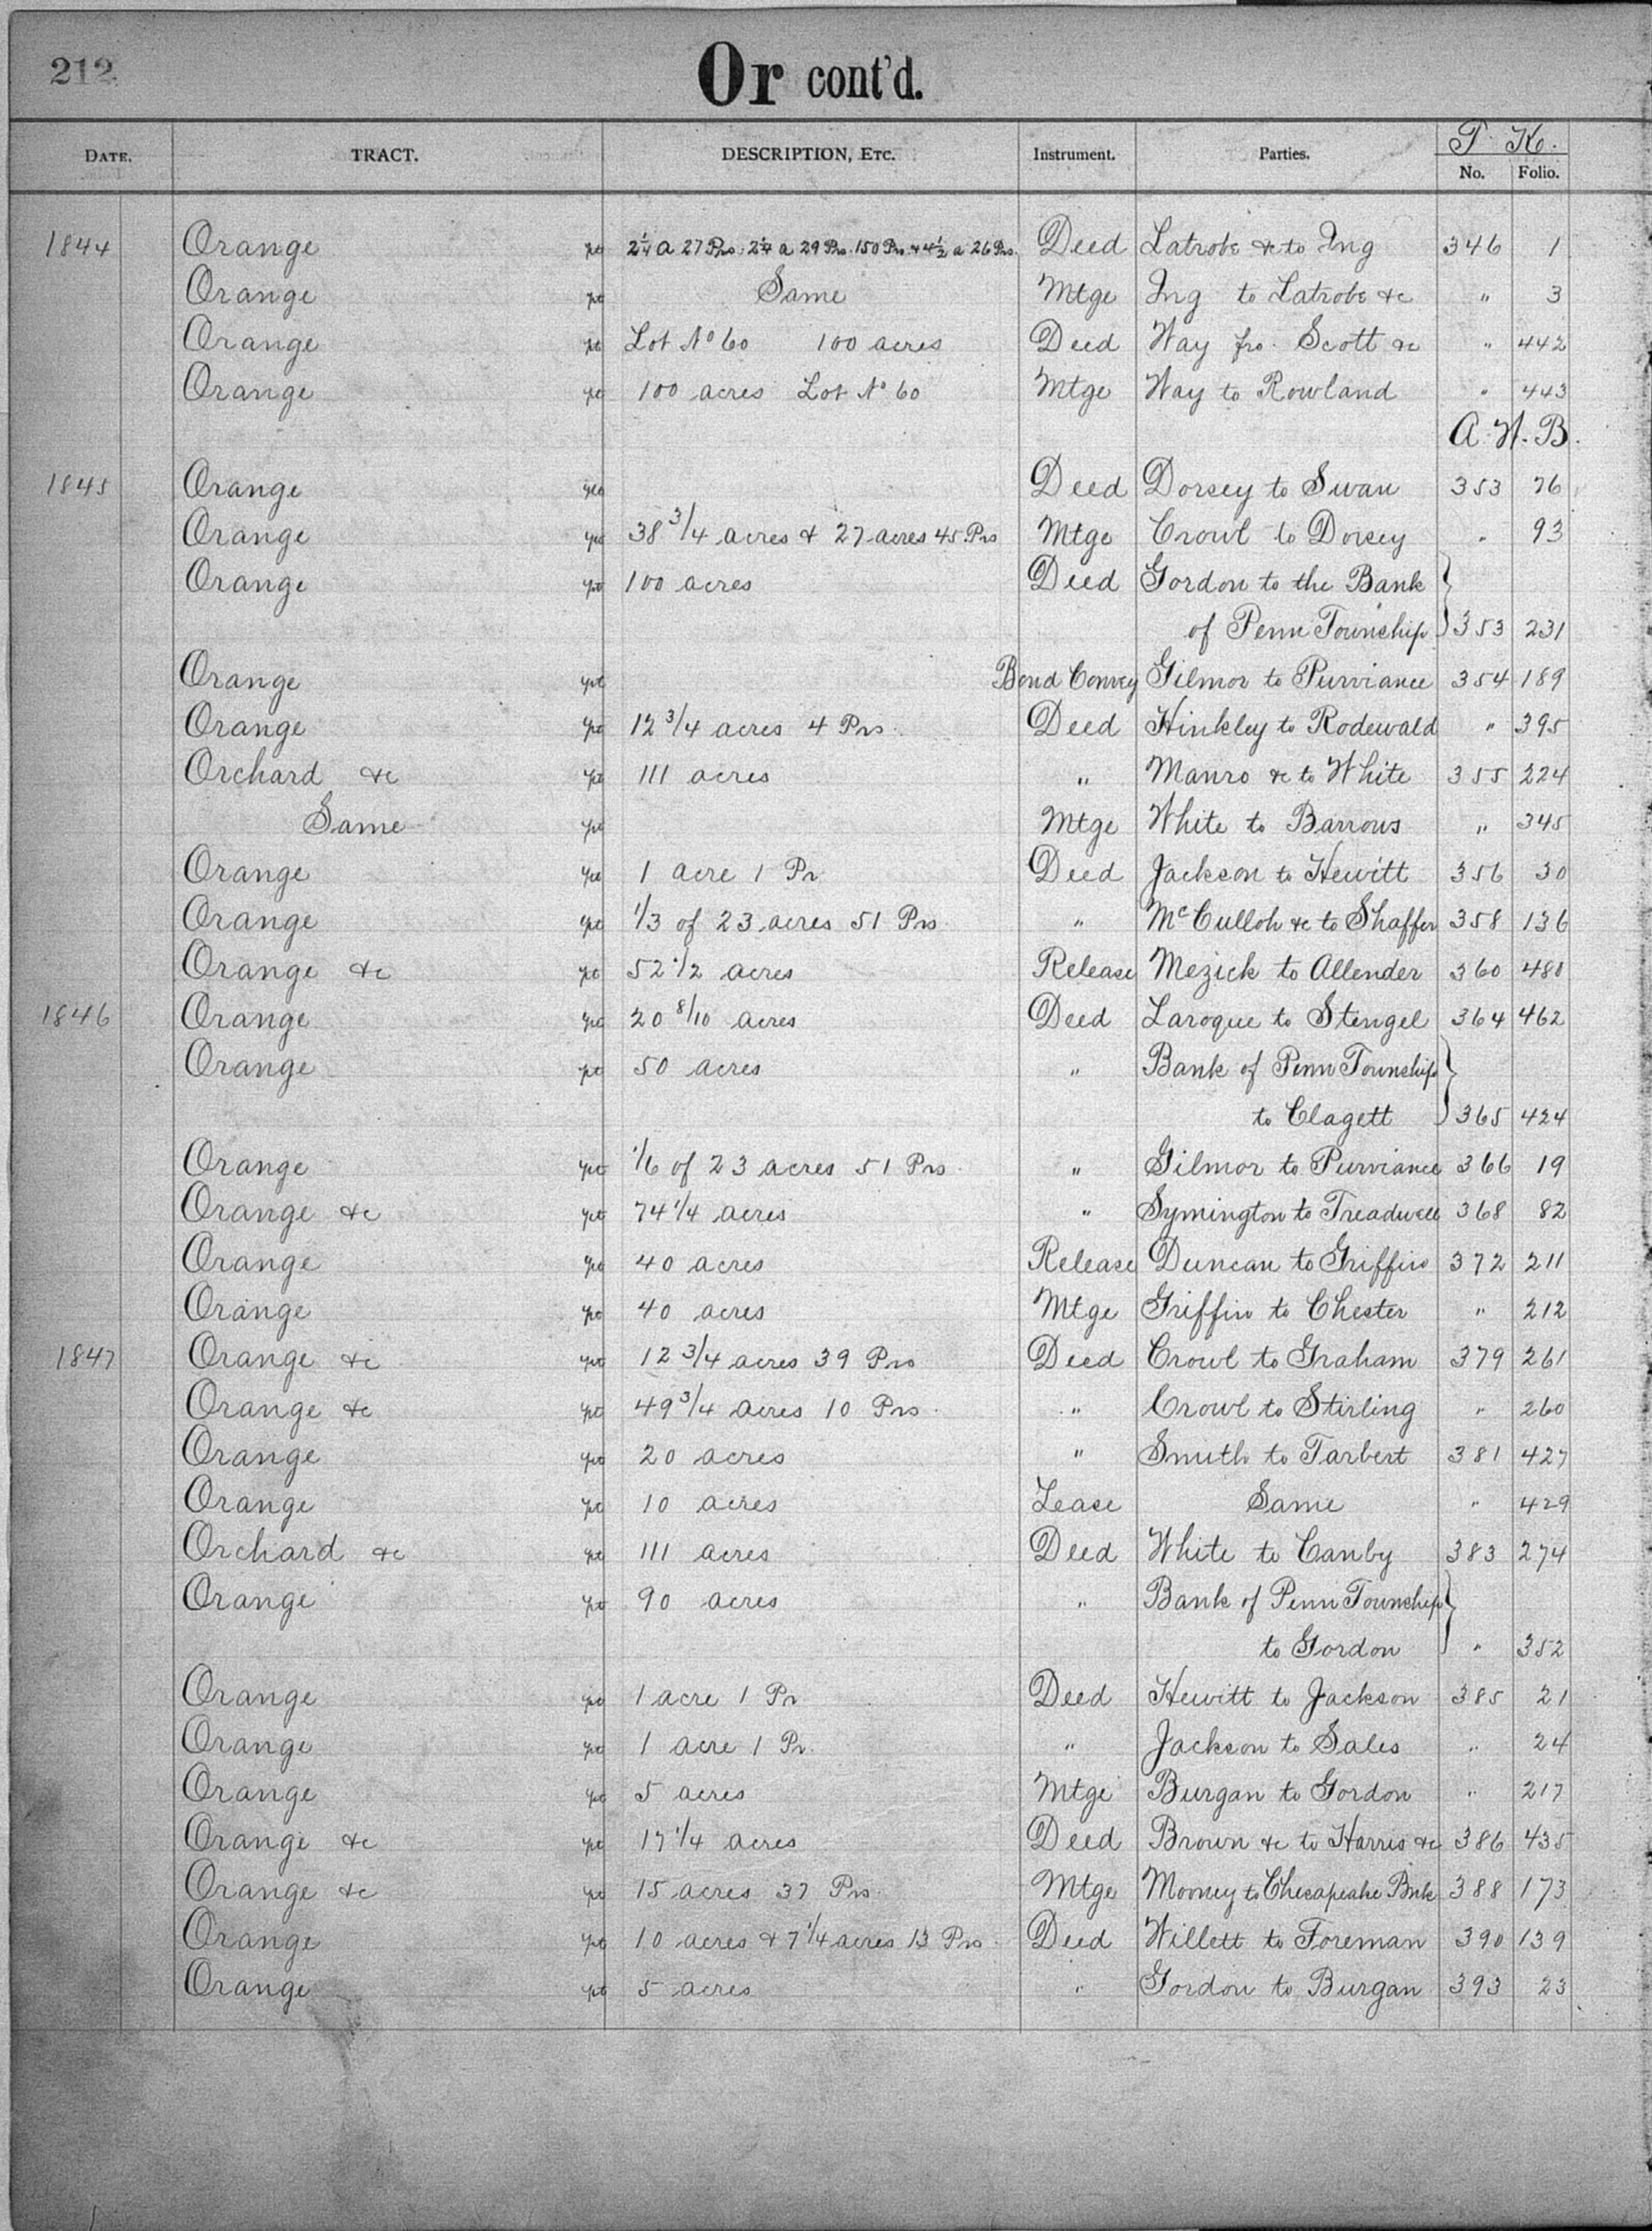 212
Or cont'd.
DATE. TRACT. DESCRIPTION, ETC. Instrument. Parties. T. K. No. Folio.
1844 Orange pt 2 1/4 a 27 Prs. 2 1/4 a 29 Prs. 150 Prs. & 4 1/2 a 26 Prs. Deed Latrobe &c to Ing 346 1
Orange pt Same Mtge Ing to Latrobe &c " 3
Orange pt Lot No 60 100 acres Deed Way fro. Scott &c " 442
Orange pt 100 acres Lot No 60 Mtge Way to Rowland " 443
A. W. B.
1845 Orange pt Deed Dorsey to Swan 353 76
Orange pt 38 3/4 acres & 27 acres 45 Prs Mtge Crowl to Dorsey " 93
Orange pt 100 acres Deed Gordon to the Bank }
of Penn Township } 353 231
Orange pt Bond Convey Gilmor to Purviance 354 189
Orange pt 12 3/4 acres 4 Prs. Deed Hinkley to Rodewald " 395
Orchard &c pt 111 acres " Manro &c to White 355 224
Same pt Mtge White to Barrows " 345
Orange pt 1 acre 1 Pr Deed Jackson to Hewitt 356 30
Orange pt 1/3 of 23 acres 51 Prs. " McCulloh &c to Shaffer 358 136
Orange &c pt 52 1/2 acres Release Mezick to Allender 360 480
1846 Orange pt 20 8/10 acres Deed Laroque to Stengel 364 462
Orange pt 50 acres " Bank of Penn Township }
to Clagett } 365 424
Orange pt 1/6 of 23 acres 51 Prs. " Gilmor to Purviance 366 19
Orange &c pt 74 1/4 acres " Symington to Treadwell 368 82
Orange pt 40 acres Release Duncan to Griffin 372 211
Orange pt 40 acres Mtge Griffin to Chester " 212
1847 Orange &c pt 12 3/4 acres 39 Prs Deed Crowl to Graham 379 261
Orange &c pt 49 3/4 acres 10 Prs. " Crowl to Stirling " 260
Orange pt 20 acres " Smith to Tarbert 381 427
Orange pt 10 acres Lease Same " 429
Orchard &c pt 111 acres Deed White to Canby 383 274
Orange pt 90 acres " Bank of Penn Township }
to Gordon } " 352
Orange pt 1 acre 1 Pr Deed Hewitt to Jackson 385 21
Orange pt 1 acre 1 Pr. " Jackson to Sales " 24
Orange pt 5 acres Mtge Burgan to Gordon " 217
Orange &c pt 17 1/4 acres Deed Brown &c to Harris &c 386 435
Orange &c pt 15 acres 37 Prs. Mtge Mooney to Chesapeake Bnk 388 173
Orange pt 10 acres & 7 1/4 acres 13 Prs. Deed Willett to Foreman 390 139
Orange pt 5 acres " Gordon to Burgan 393 23